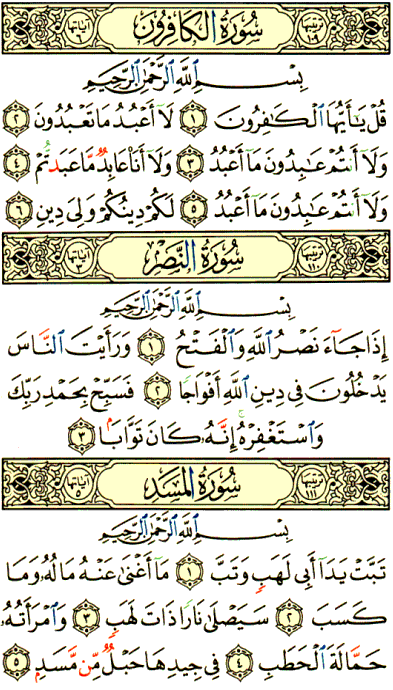 ترتيبها ١٠٩ سُورَةُ الكَافِرُونَ آياتها ٦
بِسْمِ ٱللَّهِ ٱلرَّحْمَٰنِ ٱلرَّحِيمِ
قُلْ يَٰٓأَيُّهَا ٱلْكَٰفِرُونَ ١ لَآ أَعْبُدُ مَا تَعْبُدُونَ ٢
وَلَآ أَنتُمْ عَٰبِدُونَ مَآ أَعْبُدُ ٣ وَلَآ أَنَا۠ عَابِدٌ مَّا عَبَدتُّمْ ٤
وَلَآ أَنتُمْ عَٰبِدُونَ مَآ أَعْبُدُ ٥ لَكُمْ دِينُكُمْ وَلِىَ دِينِ ٦
ترتيبها ١١٠ سُورَةُ النَّصْرِ آياتها ٣
بِسْمِ ٱللَّهِ ٱلرَّحْمَٰنِ ٱلرَّحِيمِ
إِذَا جَآءَ نَصْرُ ٱللَّهِ وَٱلْفَتْحُ ١ وَرَأَيْتَ ٱلنَّاسَ
يَدْخُلُونَ فِى دِينِ ٱللَّهِ أَفْوَاجًا ٢ فَسَبِّحْ بِحَمْدِ رَبِّكَ
وَٱسْتَغْفِرْهُ إِنَّهُۥ كَانَ تَوَّابًۢا ٣
ترتيبها ١١١ سُورَةُ المَسَدِ آياتها ٥
بِسْمِ ٱللَّهِ ٱلرَّحْمَٰنِ ٱلرَّحِيمِ
تَبَّتْ يَدَآ أَبِى لَهَبٍ وَتَبَّ ١ مَآ أَغْنَىٰ عَنْهُ مَالُهُۥ وَمَا
كَسَبَ ٢ سَيَصْلَىٰ نَارًا ذَاتَ لَهَبٍ ٣ وَٱمْرَأَتُهُۥ
حَمَّالَةَ ٱلْحَطَبِ ٤ فِى جِيدِهَا حَبْلٌ مِّن مَّسَدٍۭ ٥